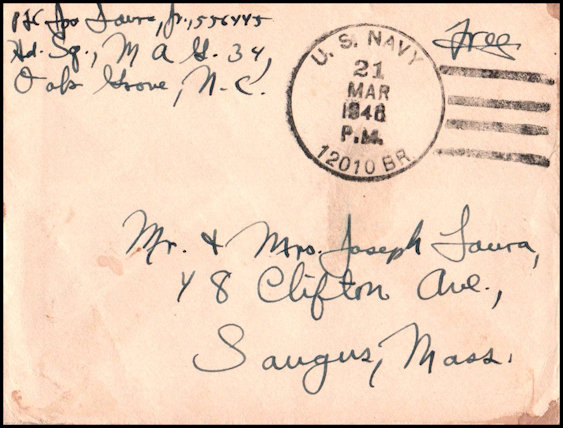 Pfc Jos Laura, Jr., 556445
Hd. Sq., M A G. 34,
Oak Grove, N.C.
Free
U. S. NAVY
21
MAR
1946
P.M.
12010 BR.
Mr. & Mrs. Joseph Laura,
48 Clifton Ave.,
Saugus, Mass.